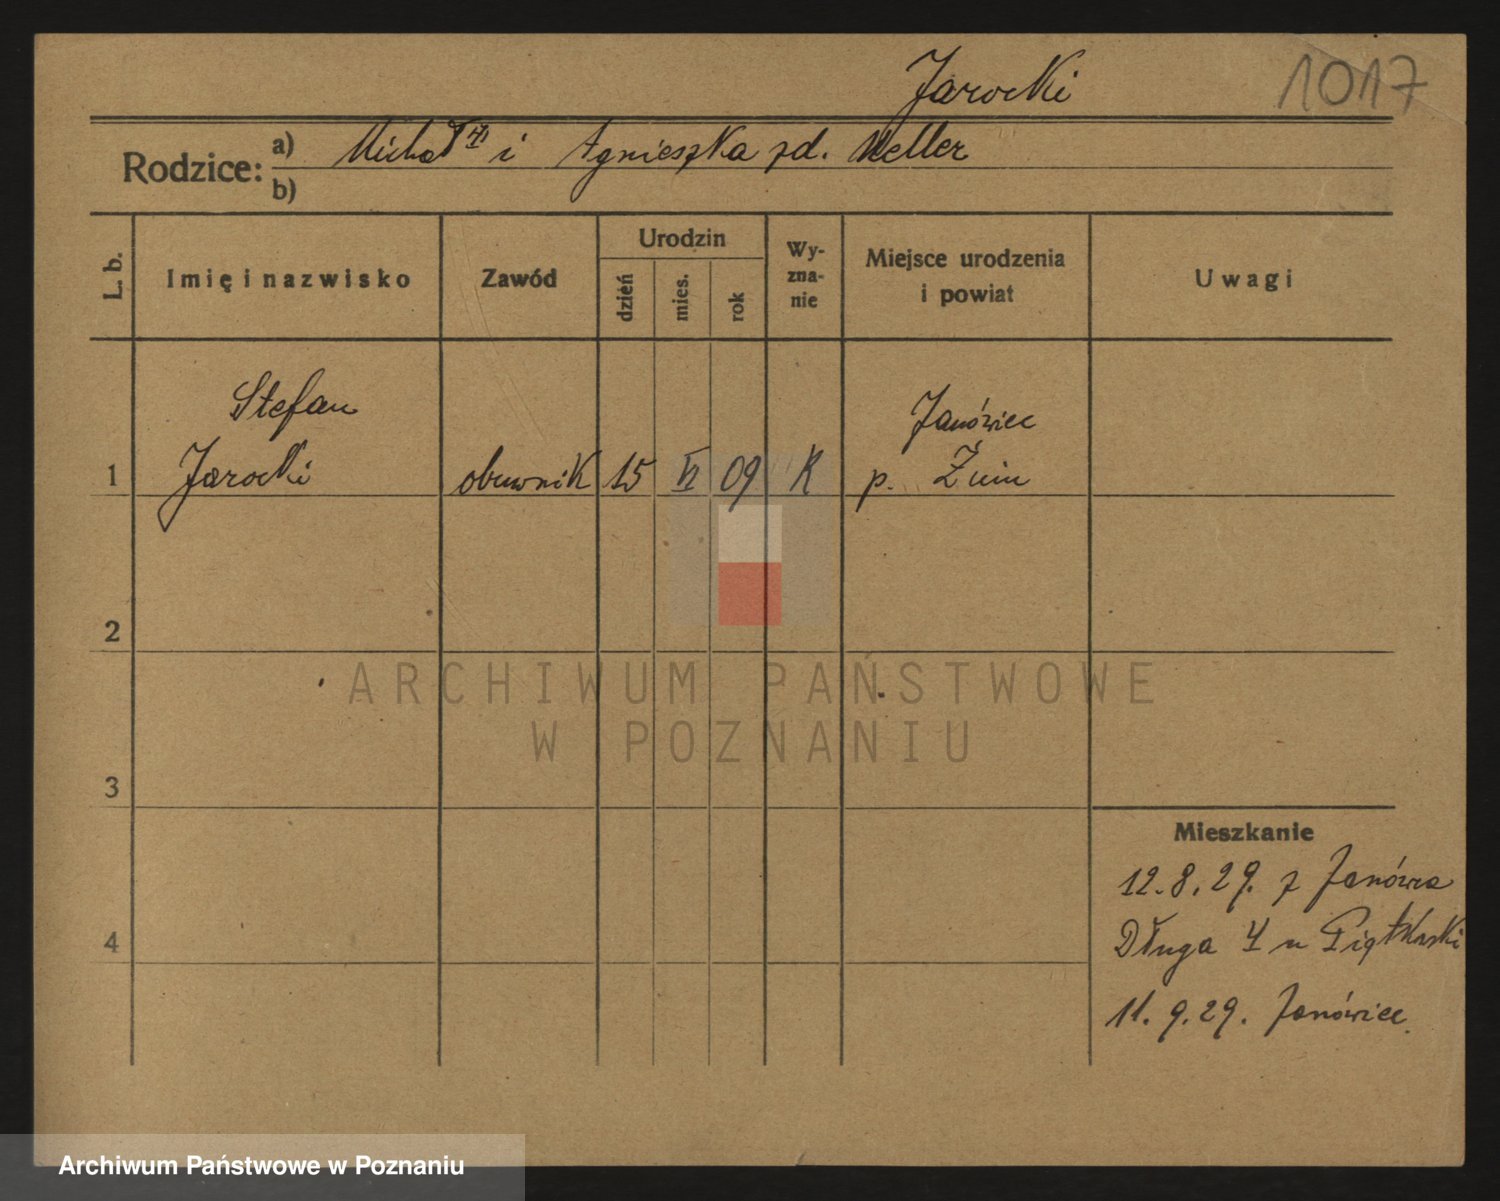 Jarocki
1017
Rodzice: a) Michał i Agnieszka zd. Keller
b)
L. b.
Imię i nazwisko
Zawód
Urodzin
dzień
mies.
rok
Wy-
zna-
nie
Miejsce urodzenia
i powiat
Uwagi
Stefan
Janówiec
1 Jarocki obuwnik 15 VI 09 K p. Żnin
2
ARCHIWUM PAŃSTWOWE
W POZNANIU
3
Mieszkanie
12.8.29. z Janówca
4
Długa 4 u
11.9.29. Janówiec.
Archiwum Państwowe w Poznaniu